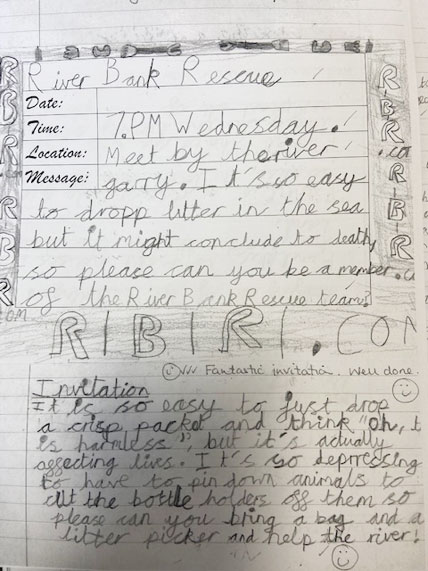 River Bank Rescue
Date:
Time: 7.PM Wednesday.!
Location: Meet by theriver!
Message: garry. It's so easy
to dropp litter in the sea
but it might conclude to death,
so please can you be a member
of the River Bank Rescue team!
R|B|R|.COM
Fantastic invitation. Well done.
Invitation
It is so easy to just drop
a crisp packet and think "oh, t
is harmless", but it's actually
affecting lives. It's so deprressing
to have to pin down animals to
cut the bottle holders off them so
please can you bring a bag and a
litter picker and help the river!